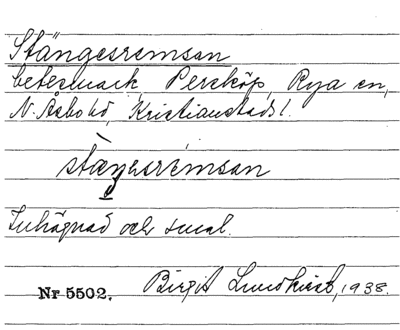 Stängesremsan
betesmark, Persköp, Rya sn,
N. Åsbo hd, Kristianstads l.
stæŋesrémsan
Inhägnad och smal.
Nr 5502. Birgit Lundkvist, 1938.